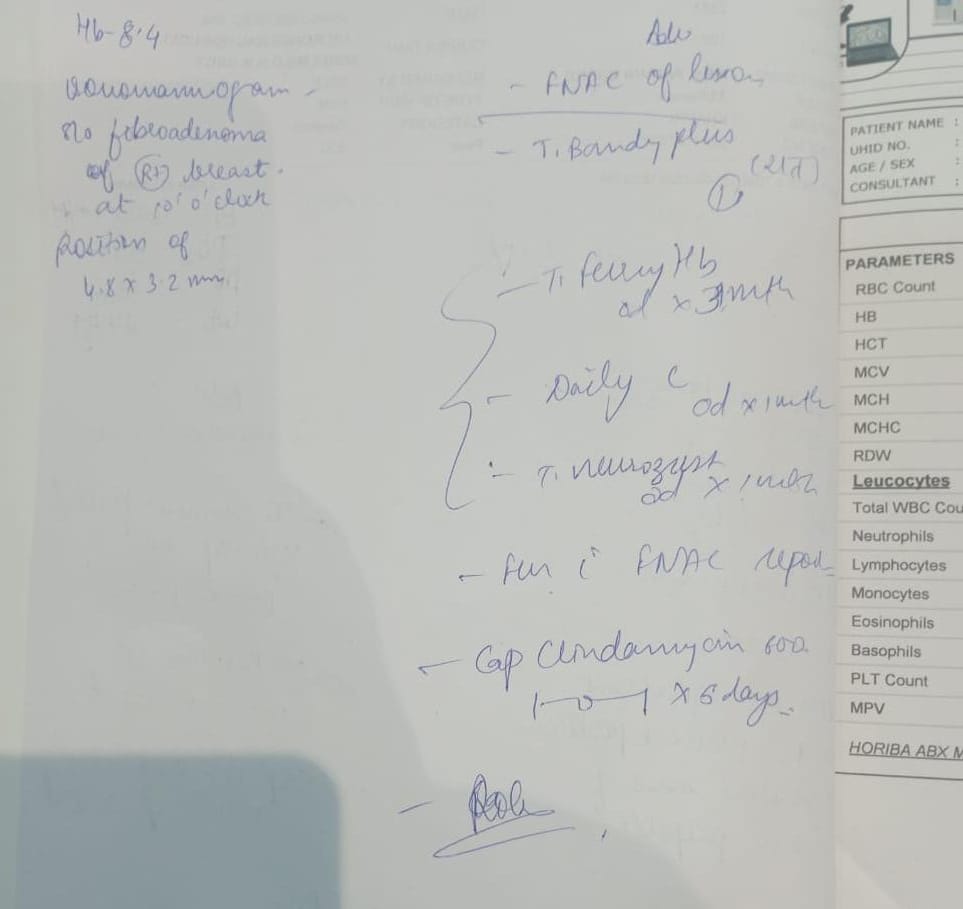 Hb-8.4
sonomammogram -
s/o fibroadenoma
of (Rt) breast.
at 10' o'clock
Position of
4.8 x 3.2 mm.
Adv
- FNAC of lesion
- T. Bandy plus
(1)
- T. Ferry Hb
od x 3 mth
- Daily C
od x 1 mth
- T. neurozyst
od x 1 mth
- FNAC report
- Cap Clindamycin 600
1-0-1 x 5 days.
PATIENT NAME :
UHID NO. :
AGE / SEX :
CONSULTANT :
PARAMETERS
RBC Count
HB
HCT
MCV
MCH
MCHC
RDW
Leucocytes
Total WBC Cou
Neutrophils
Lymphocytes
Monocytes
Eosinophils
Basophils
PLT Count
MPV
HORIBA ABX M